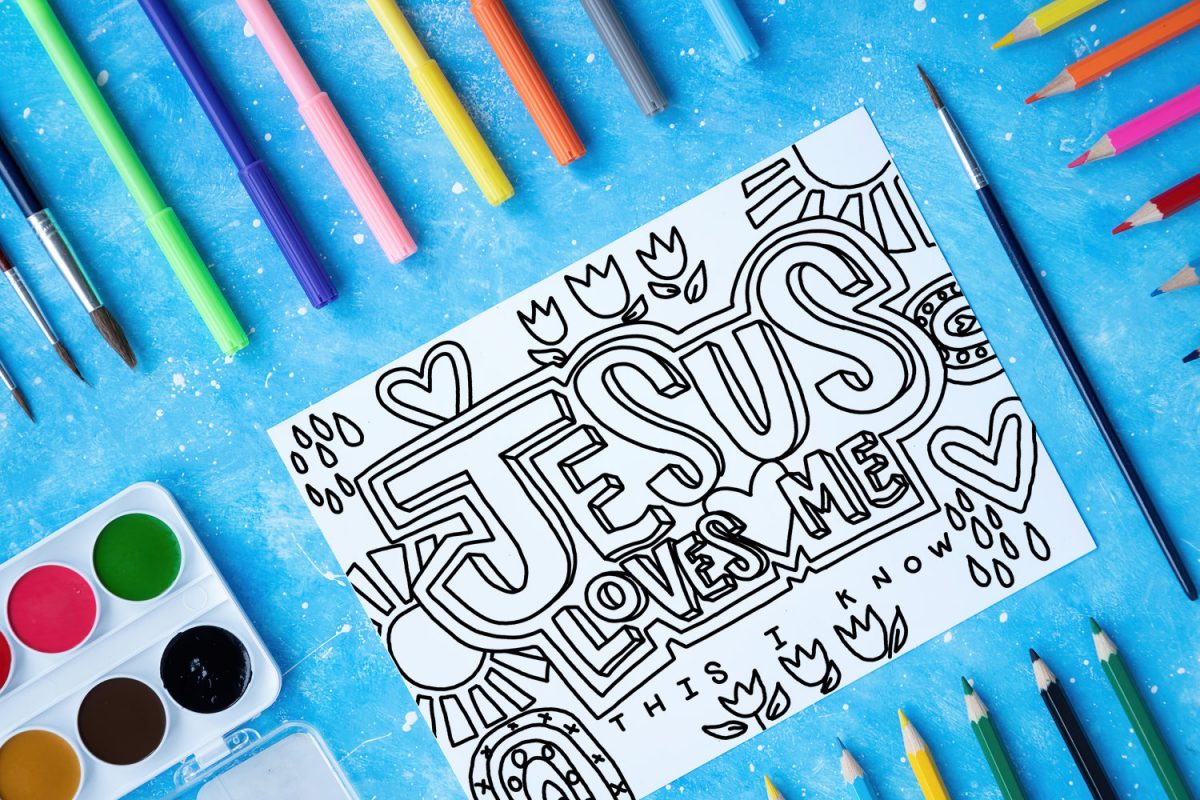 JESUS
LOVES ME
THIS I KNOW